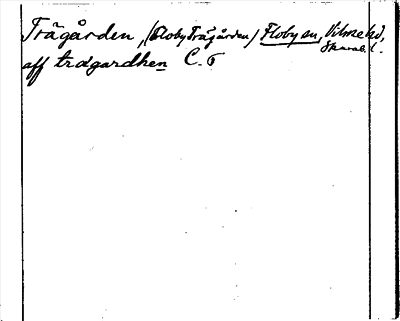 Trägården, (Floby Trägården) Floby sn, Vilske hd,
Skarab. l.
aff trægardhen C. 6